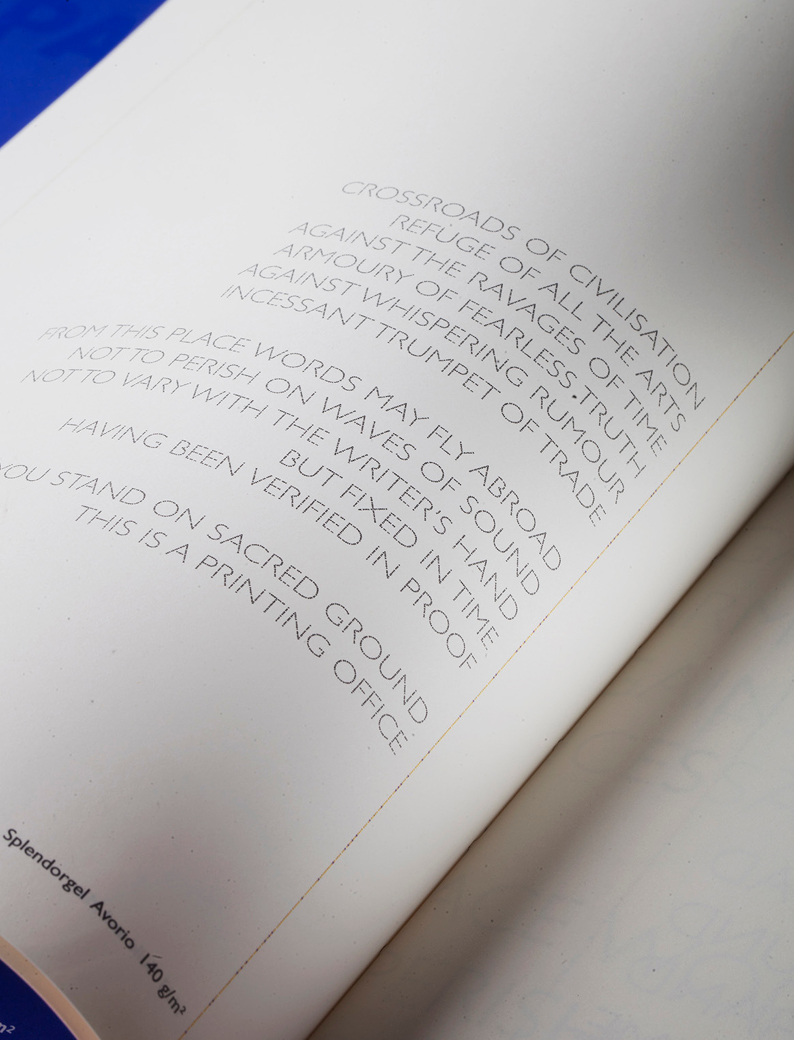 CROSSROADS OF CIVILISATION
REFUGE OF ALL THE ARTS
AGAINST THE RAVAGES OF TIME
ARMOURY OF FEARLESS TRUTH
AGAINST WHISPERING RUMOUR
INCESSANT TRUMPET OF TRADE
FROM THIS PLACE WORDS MAY FLY ABROAD
NOT TO PERISH ON WAVES OF SOUND
NOT TO VARY WITH THE WRITER'S HAND
BUT FIXED IN TIME
HAVING BEEN VERIFIED IN PROOF
YOU STAND ON SACRED GROUND
THIS IS A PRINTING OFFICE
Splendorgel Avorio 140 g/m²
m²